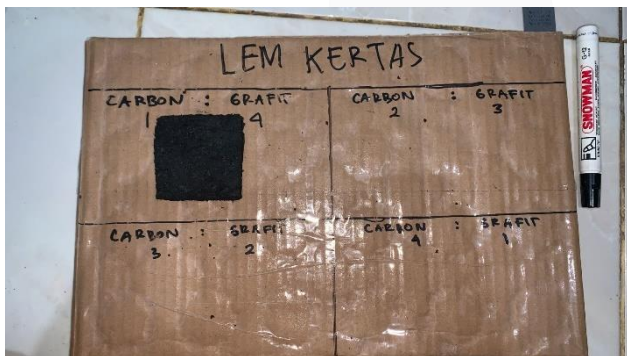 LEM KERTAS
CARBON : GRAFIT
1 4
CARBON : GRAFIT
2 3
CARBON : GRAFIT
3 2
CARBON : GRAFIT
4 1
SNOWMAN
G-12